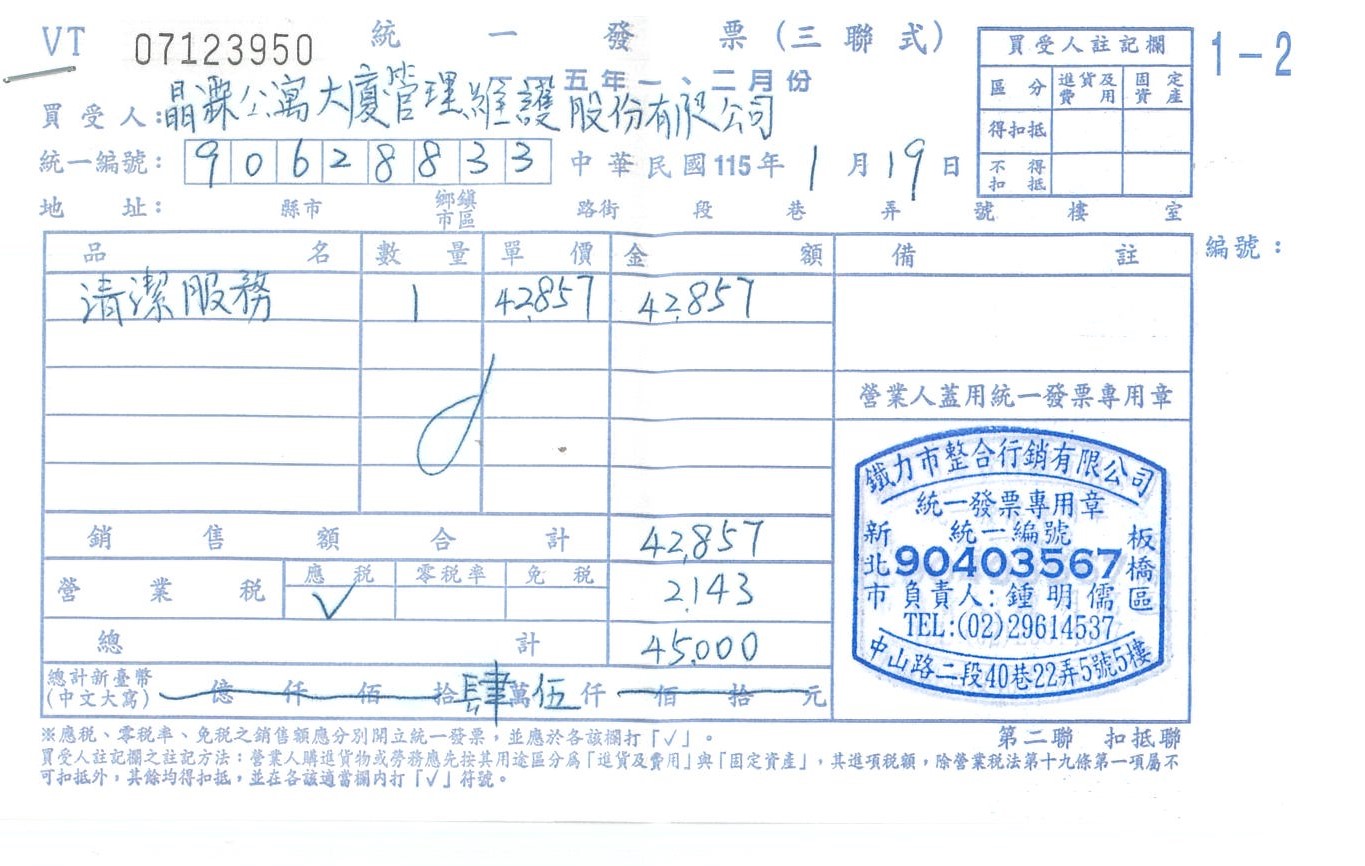 VT 07123950 統一發票(三聯式)
1-2
五年一、二月份
買受人註記欄
區分 進貨及費用 固定資產
得扣抵
不得扣抵
買受人:晶 公寓大廈管理維護股份有限公司
統一編號: 90628833 中華民國115年1月19日
地址: 縣市 鄉鎮市區 路街 段 巷 弄 號 樓 室
品名 數量 單價 金額 備註
編號:
清潔服務 1 42,857 42,857
營業人蓋用統一發票專用章
鐵力市整合行銷有限公司
統一發票專用章
統一編號
90403567
新北市 板橋區
負責人:鍾明儒
TEL:(02)29614537
中山路二段40巷22弄5號5樓
銷售額合計 42,857
營業稅 應稅 √ 零稅率 免稅 2,143
總計 45,000
總計新臺幣(中文大寫) 億仟佰拾肆萬伍仟佰拾元
※應稅、零稅率、免稅之銷售額應分別開立統一發票,並應於各該欄打「√」。
第二聯 扣抵聯
買受人註記欄之註記方法:營業人購進貨物或勞務應先按其用途區分為「進貨及費用」與「固定資產」,其進項稅額,除營業稅法第十九條第一項屬不
可扣抵外,其餘均得扣抵,並在各該適當欄內打「√」符號。